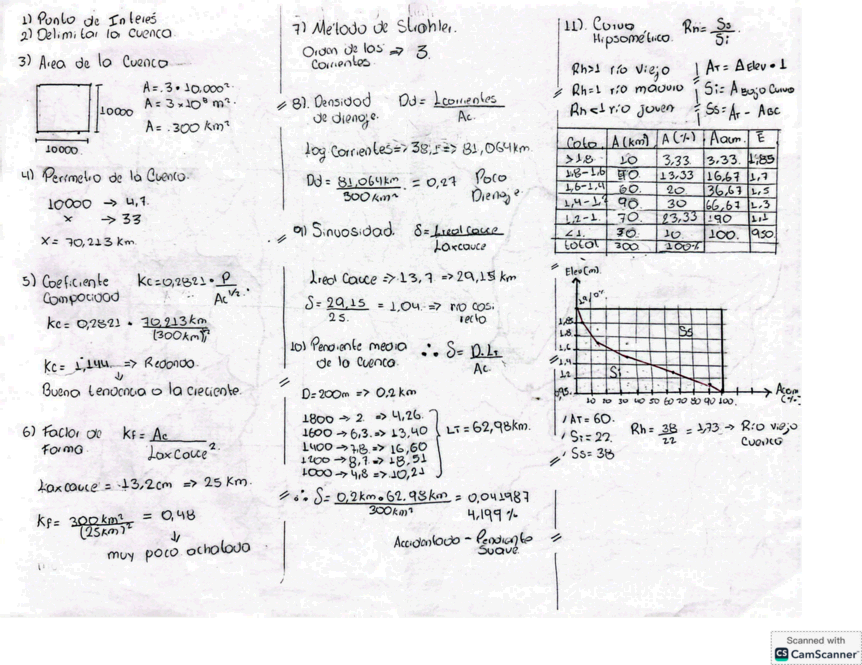 1) Punto de Interés
2) Delimitar la Cuenca.
3) Area de la Cuenca
A= .3 * 10.000².
A= 3 * 10⁸ m².
A= .300 km²
10000
10000.
4) Perímetro de la Cuenca.
10000 → 4,7.
x → 33
X = 70,213 km.
5) Coeficiente Kc=0,2821 · P / Ac^1/2.
Compacidad
Kc = 0,2821 · 70,213 km / (300 km²)^½
Kc = 1,144 ⇒ Redonda.
↓
Buena tendencia a la creciente.
6) Factor de Forma. Kf = Ac / Laxcauce².
Laxcauce = 13,2cm ⇒ 25 Km.
Kf = 300 km² / (25km)² = 0,48
↓
muy poco achatada
7) Método de Strahler.
Orden de las ⇒ 3.
Corrientes.
8). Densidad de drenaje. Dd = Lcorrientes / Ac.
Log Corrientes ⇒ 38,1 ⇒ 81,064km.
Dd = 81,064km / 300 km² = 0,27 Poco Drenaje.
9) Sinuosidad. S = Lreal cauce / Laxcauce
Lreal Cauce ⇒ 13,7 ⇒ 29,15 km
S = 29,15 / 25. = 1,04. ⇒ río casi recto.
10) Pendiente media ∴ S = D.Lt / Ac.
de la Cuenca.
D = 200m ⇒ 0,2 km
1800 → 2. ⇒ 4,26.
1600 → 6,3. ⇒ 13,40
1400 → 7,8. ⇒ 16,60
1200 → 8,7. ⇒ 18,51
1000 → 4,8 ⇒ 10,21
LT = 62,98km.
∴ S = 0,2km · 62.98km / 300km² = 0,041987
4,199 %
Accidentado - Pendiente Suave
11). Curva Hipsométrica. Rh = Ss / Si
Rh>1 río viejo
Rh=1 río maduro
Rh<1 río joven
AT = Δ Elev * 1
Si = A Bajo Curva
Ss = AT - ABC
Cota. A (km) A (%) Aacum. E̅
>1.8 10 3,33 3,33. 1,85
1.8-1.6 40. 13,33 16,67 1,7
1,6-1,4 60. 20 36,67 1,5
1,4-1,2 90. 30 66,67 1,3
1,2-1. 70. 23,33 90 1,1
<1. 30. 10 100. 950.
total 300 100%
Elev(m).
1,85
1,8.
1,6
1,4
1,2
0,95.
Ss
Si
10 20 30 40 50 60 70 80 90 100.
Acum (%).
AT = 60.
Si = 22.
Ss = 38
Rh = 38 / 22 = 1,73 → Río viejo
Cuenca
Scanned with
CS CamScanner